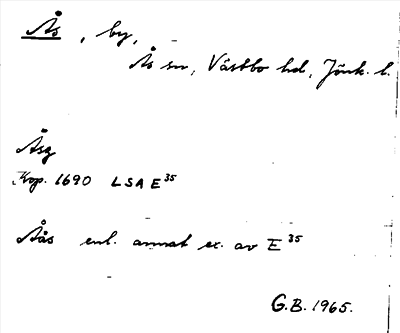 Ås, by,
Ås sn, Västbo hd, Jönk. l.
Åsz
Kop. 1690 LSA E 35
Åås enl. annat ex. av E 35
G.B. 1965.